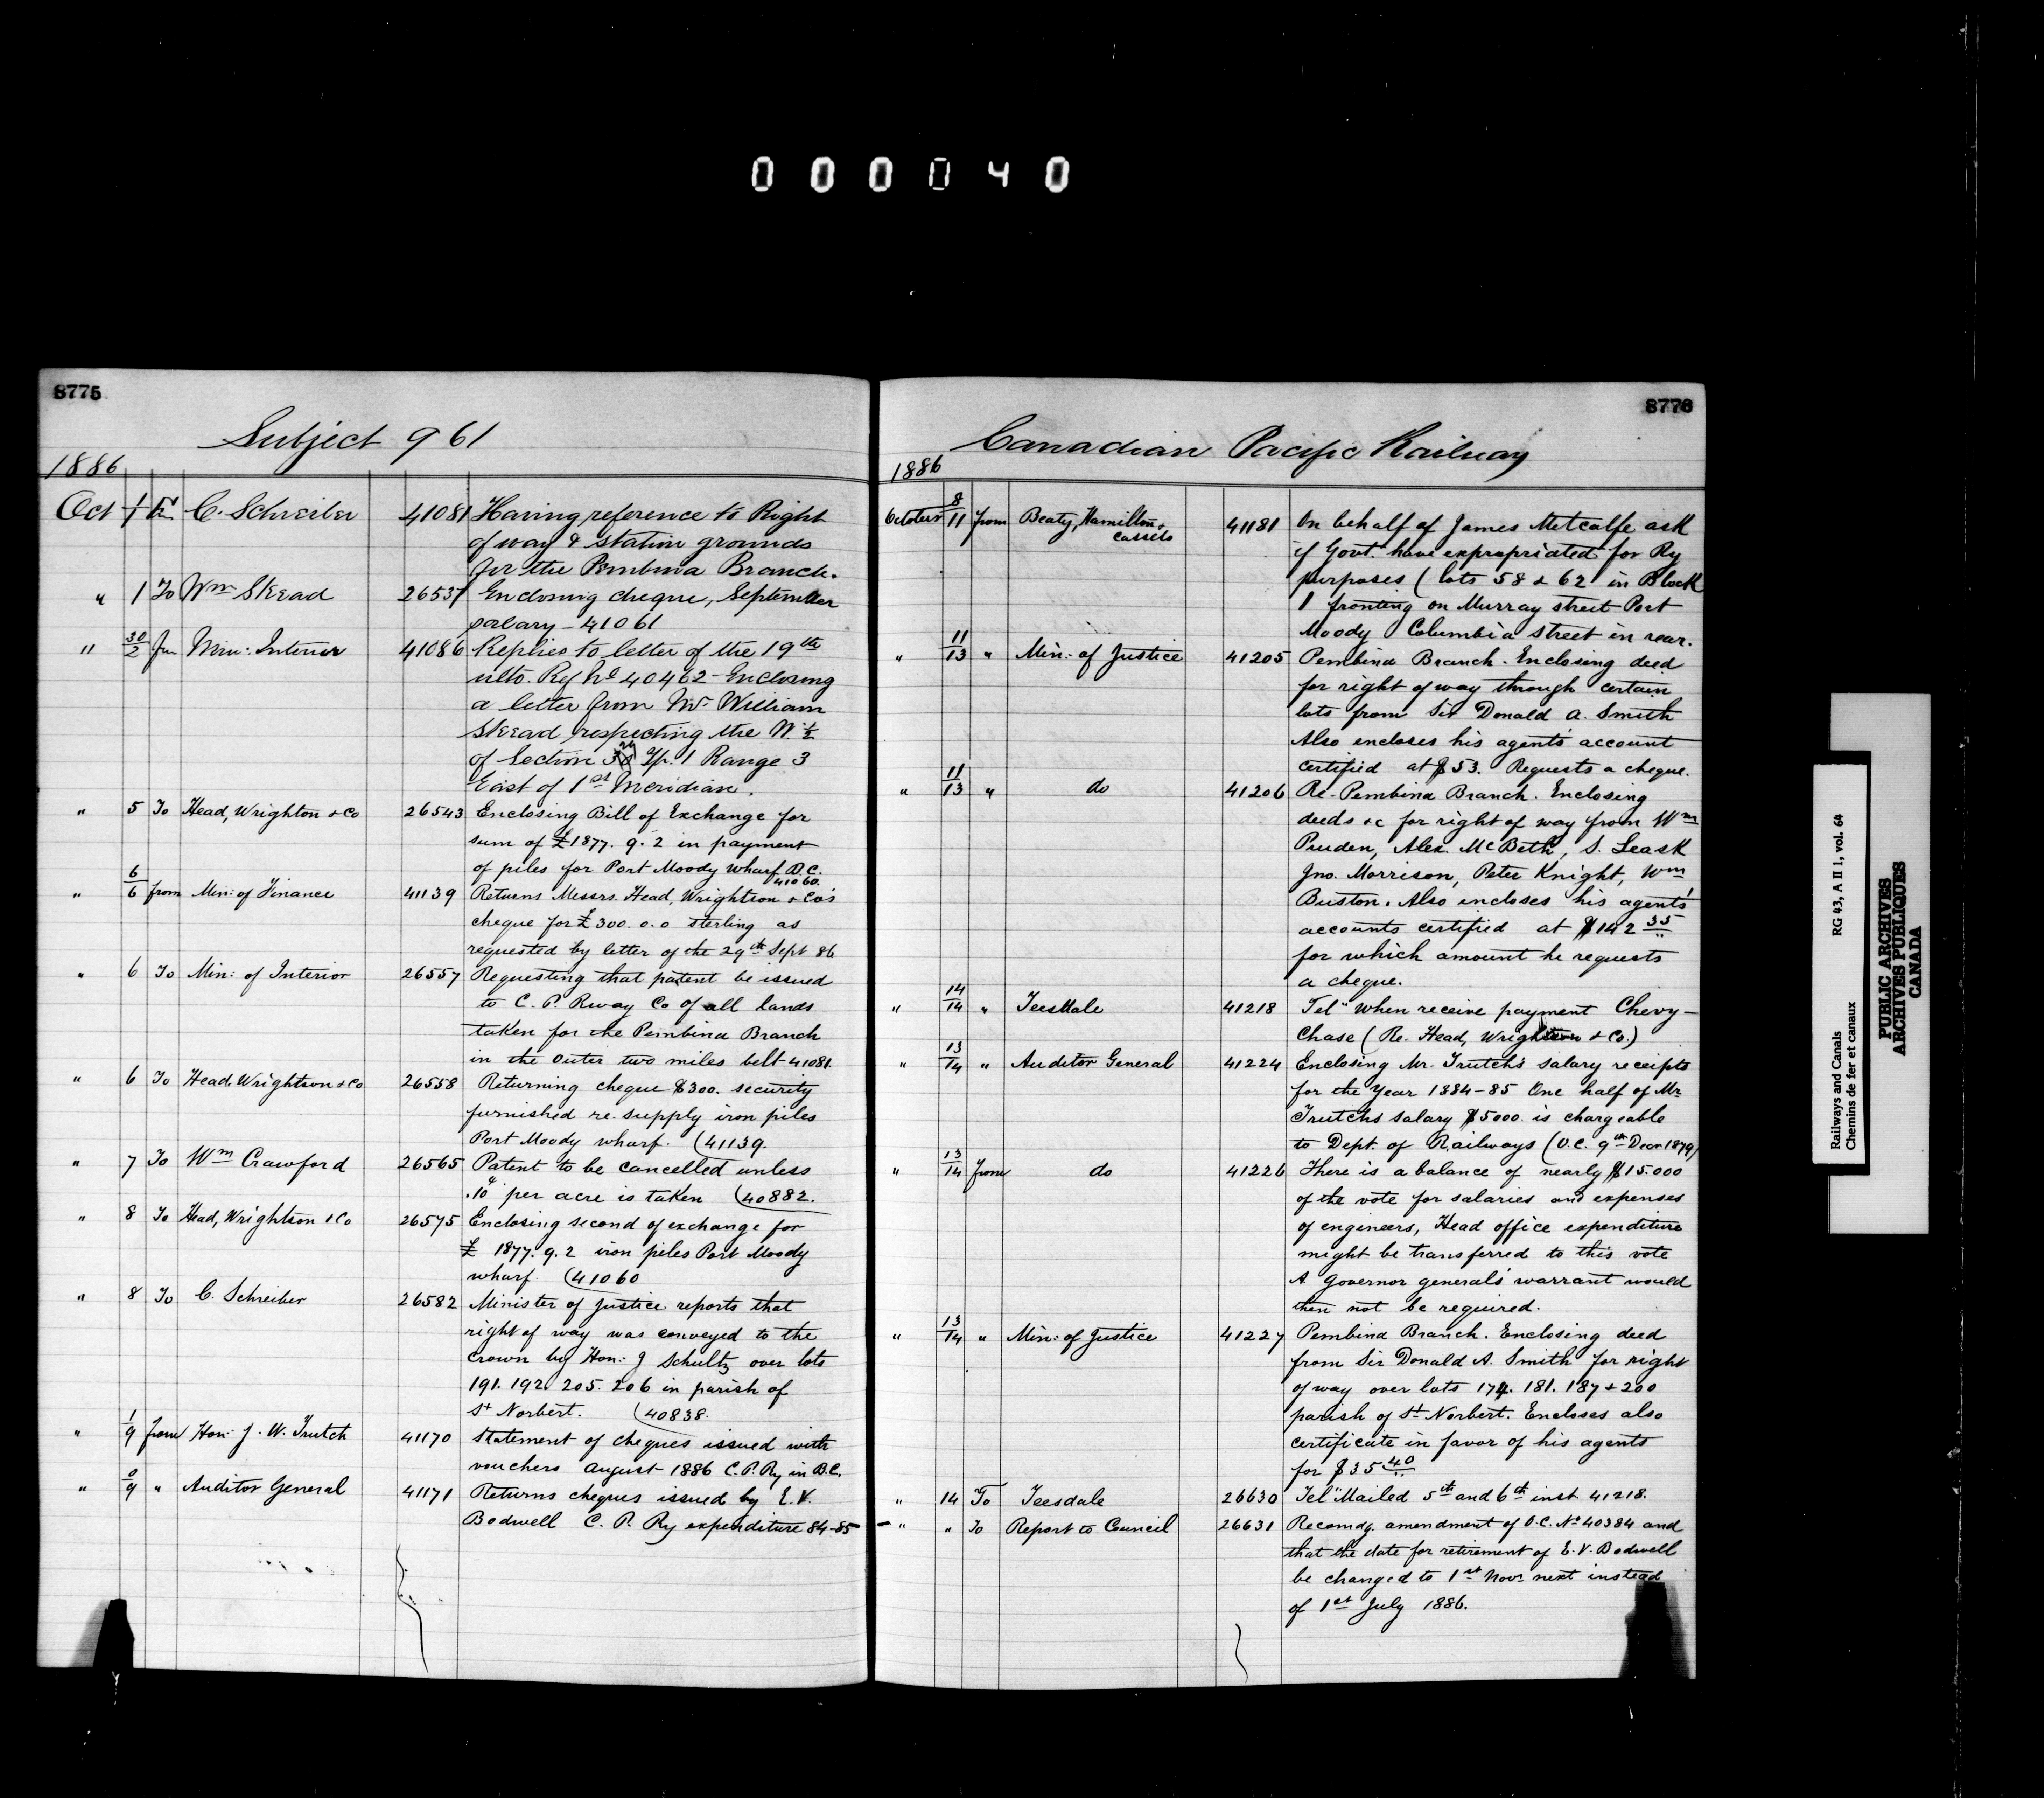 000040
8775
Subject 961
1886
Oct 1/1 fm C. Schreiber 41081 Having reference to Right
of way & station grounds
for the Pembina Branch.
" 1 To Wm Skead 26537 Enclosing cheque, September
salary - 41061
" 30/2 fm Min: Interior 41086 Replies to letter of the 19th
ulto. Ry No 40462 - Enclosing
a letter from Mr William
Skead respecting the W. ½
of Section Tp. 1 Range 3
East of 1st Meridian.
" 5 To Head, Wrighton & Co 26543 Enclosing Bill of Exchange for
sum of £1877. 9. 2 in payment
of piles for Port Moody Wharf B.C.
41060.
" 6/6 from Min: of Finance 41139 Returns Messrs. Head, Wrightson & Co's
cheque for £300. 0. 0 sterling as
requested by letter of the 29th Sept 86
" 6 To Min: of Interior 26557 Requesting that patent be issued
to C. P. Rway Co of all lands
taken for the Pembina Branch
in the outer two miles belt 41081.
" 6 To Head, Wrightson & Co 26558 Returning cheque $300. security
furnished re supply iron piles
Port Moody wharf. (41139.
" 7 To Wm Crawford 26565 Patent to be cancelled unless
.10¢ per acre is taken (40882.
" 8 To Head, Wrightson & Co 26575 Enclosing second of exchange for
£ 1877. 9. 2 iron piles Port Moody
wharf. (41060
" 8 To C. Schreiber 26582 Minister of Justice reports that
right of way was conveyed to the
crown by Hon: J Schultz over lots
191. 192. 205. 206 in parish of
St Norbert. (40838.
" 1/9 from Hon: J. W. Trutch 41170 Statement of cheques issued with
vouchers August 1886 C. P. Ry in B.C.
" 9 " Auditor General 41171 Returns cheques issued by E. V.
Bodwell C. P. Ry expenditure 84-85
8776
Canadian Pacific Railway
1886
October 8/11 from Beaty, Hamilton &
Cassels 41181 On behalf of James Metcalfe ask
if Govt. have expropriated for Ry
purposes (lots 58 & 62 in Block
1 fronting on Murray street Port
Moody Columbia street in rear.
" 11/13 " Min: of Justice 41205 Pembina Branch. Enclosing deed
for right of way through certain
lots from Sir Donald A. Smith
Also encloses his agents' account
certified at $53. Requests a cheque.
" 11/13 " do 41206 Re-Pembina Branch. Enclosing
deeds &c for right of way from Wm
Pruden, Alex. McBeth, S. Leask
Jno. Morrison, Peter Knight, Wm
Buston. Also incloses his agents'
accounts certified at $142 35
for which amount he requests
a cheque.
" 14/14 " Teesdale 41218 Tel" When receive payment Chevy-
Chase (Re. Head, Wrightson & Co.)
" 13/14 " Auditor General 41224 Enclosing Mr. Trutch's salary receipts
for the Year 1884-85 One half of Mr
Trutchs salary $5000. is chargeable
to Dept. of Railways (O.C. 9th Decr 1879)
" 13/14 from do 41226 There is a balance of nearly $15.000
of the vote for salaries and expenses
of engineers, Head office expenditure
might be transferred to this vote
A governor generals' warrant would
then not be required.
" 13/14 " Min: of Justice 41227 Pembina Branch. Enclosing deed
from Sir Donald A. Smith for right
of way over lots 174. 181. 187 & 200
parish of St Norbert. Encloses also
certificate in favor of his agents
for $35 40
" 14 To Teesdale 26630 Tel" Mailed 5th and 6th inst 41218.
- " " To Report to Council 26631 Recomdg. amendment of O.C. No 40384 and
that the date for retirement of E. V. Bodwell
be changed to 1st Novr next instead
of 1st July 1886.
Railways and Canals RG 43, A II 1, vol. 64
Chemins de fer et canaux
PUBLIC ARCHIVES
ARCHIVES PUBLIQUES
CANADA